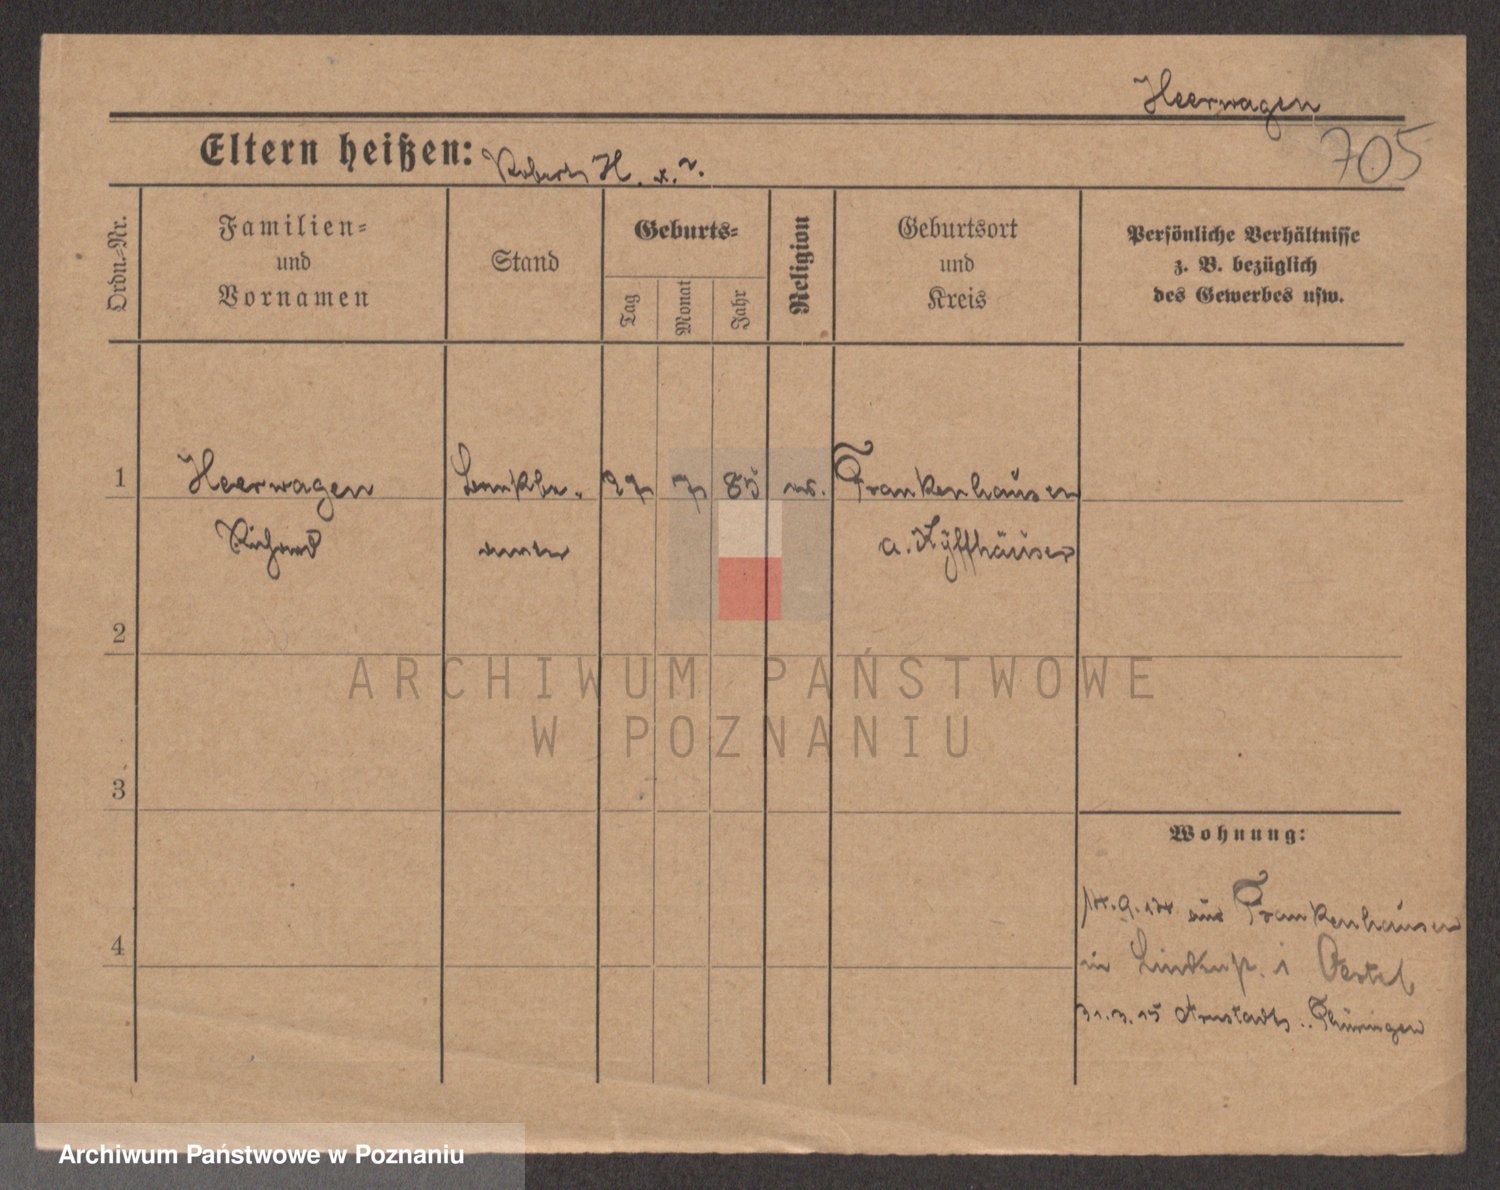 Heerwagen
705
Eltern heißen: Robert H. u. ?.
Ordn.=Nr.
Familien=
und
Vornamen
Stand
Geburts=
Tag
Monat
Jahr
Religion
Geburtsort
und
Kreis
Persönliche Verhältnisse
z. B. bezüglich
des Gewerbes usw.
1
Heerwagen
Richard
Bankbe=
amter
27
7
85
ev.
Frankenhausen
a. Kyffhäuser
2
3
4
Wohnung:
aus Frankenhausen
in Lindenstr. 1
31.3.15 Arnstadt i. Thüringen
ARCHIWUM PAŃSTWOWE
W POZNANIU
Archiwum Państwowe w Poznaniu